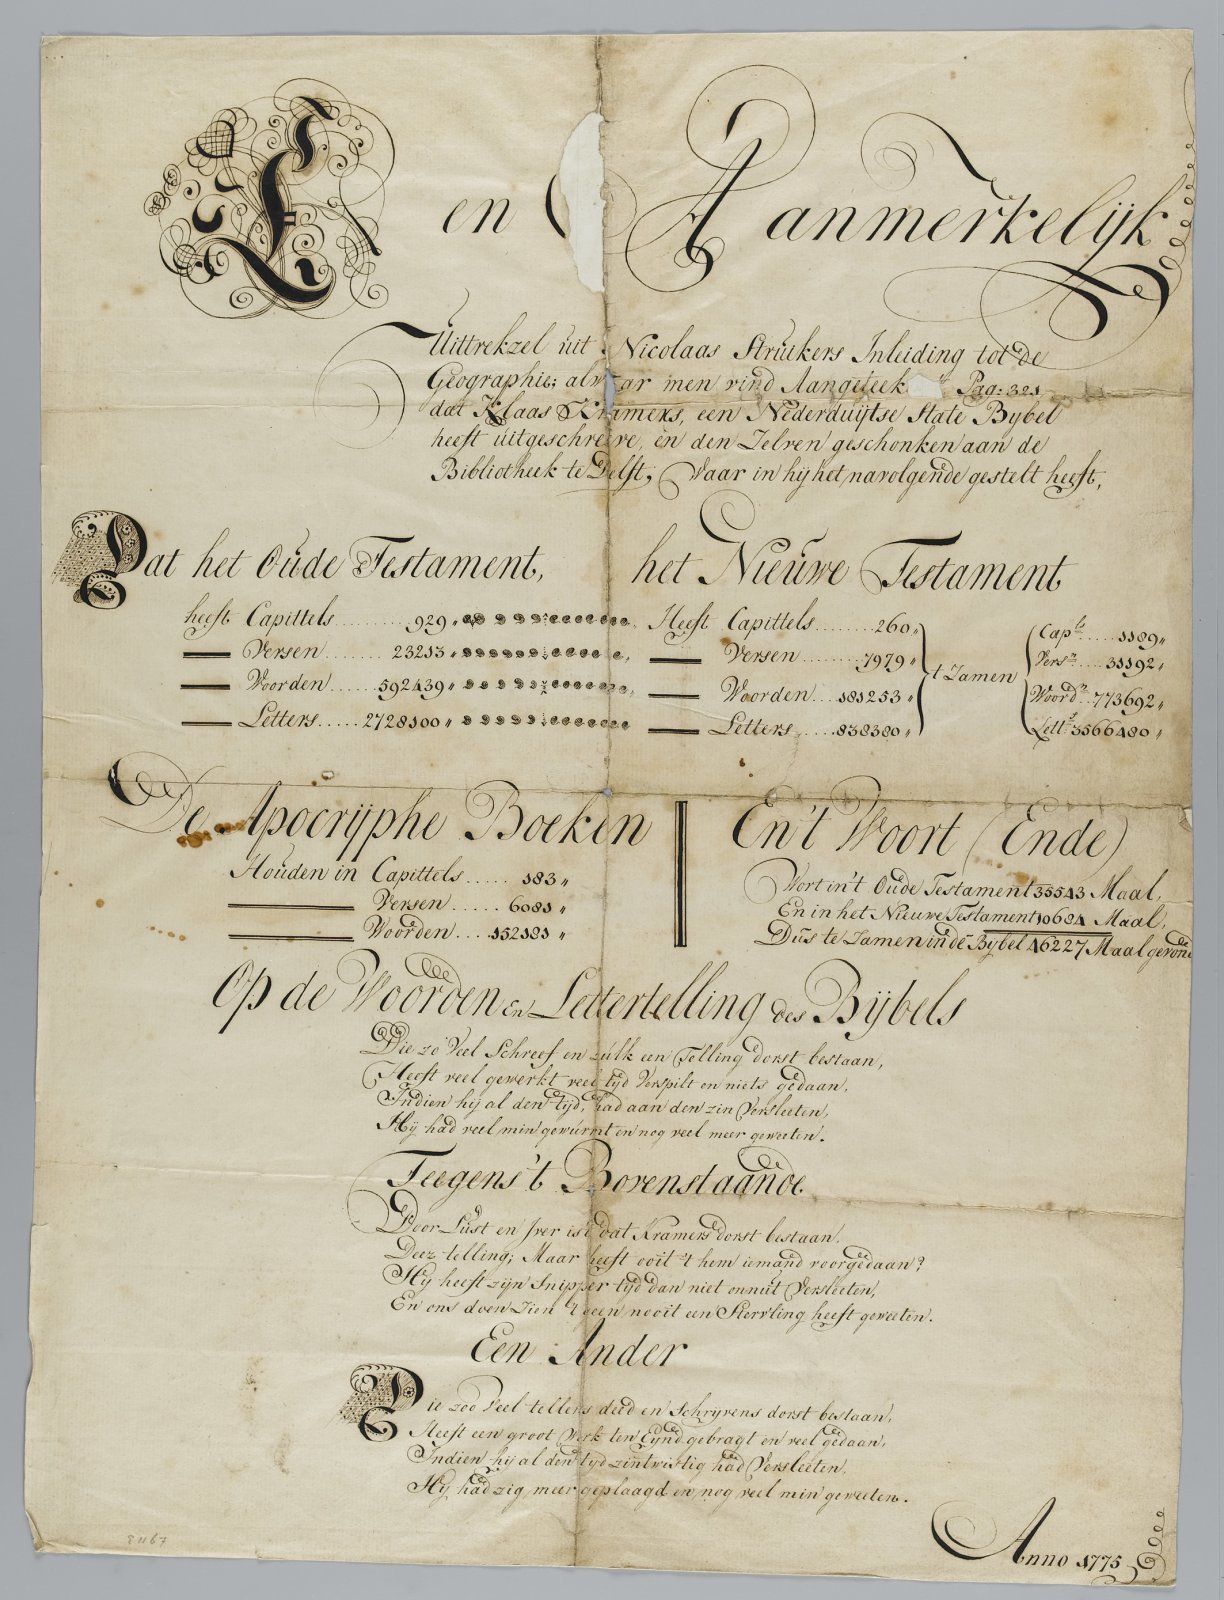 Een Aanmerkelijk
Uittrekzel uit Nicolaas Struikers Inleiding tot de
Geographie; alwaar men vind Aangeteek Pag: 321
dat Klaas Kramers, een Nederduijtse State Bybel
heeft uitgeschreeve, en den Zelven geschonken aan de
Bibliotheek te Delft, Waar in hij het navolgende gestelt heeft,
Dat het Oude Testament,
heeft Capittels 929
Versen 23213
Woorden 592439
Letters 2728100
het Nieuwe Testament
Heeft Capittels 260
Versen 7979
Woorden 181253
Letters 838380
t Zamen
Capls 1189
Versn 31192
Woordn 773692
Lettrs 3566480
De Apocrijphe Boeken
Houden in Capittels 183
Versen 6081
Woorden 152181
En't Woort (Ende)
Wort in't Oude Testament 35543 Maal,
En in het Nieuwe Testament 10684 Maal,
Dus te Zamen in de Bybel 46227 Maal gevonde
Op de Woorden en Lettertelling des Bijbels
Die zo Veel Schreef en zulk een Telling dorst bestaan,
Heeft veel gewerkt veel tijd Verspilt en niets gedaan,
Indien hij al den tijd, had aan den zin Versleeten,
Hij had veel min gewurmt en nog veel meer geweeten.
Teegens't Bovenstaande
Door Lust en Jver is't dat Kramers dorst bestaan,
Deez telling; Maar heeft ooit 't hem iemand voorgedaan?
Hij heeft zijn Snipper tijd dan niet onnut Versleeten,
En ons doen Zien 't geen nooit een Stervling heeft geweeten.
Een Ander
Die zoo Veel tellens deed en Schrijvens dorst bestaan,
Heeft een groot Werk ten Eynd gebragt en veel gedaan,
Indien hij al den tijd zintwistig had Versleeten,
Hij had zig meer geplaagd en nog veel min geweeten.
Anno 1775